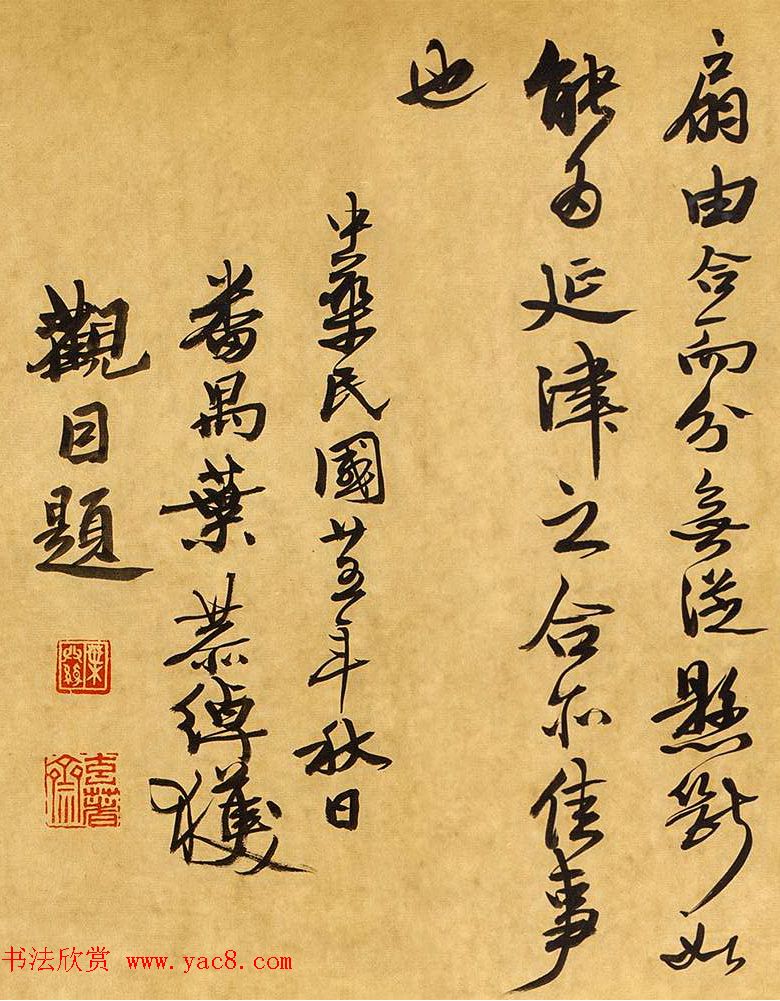 扇由合而分無從懸斷如
能爲延津之合亦佳事
也
中華民國廿五年秋日
番禺葉恭綽獲
觀因題
書法欣賞 www.yac8.com